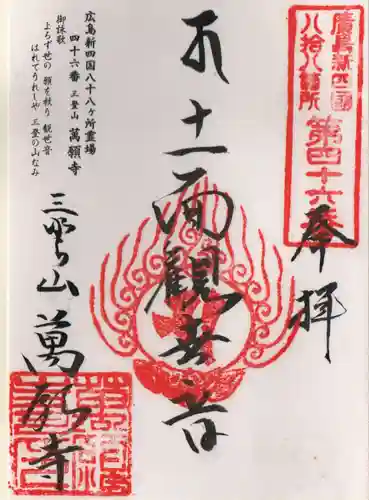 廣島新四国
八拾八箇所
第四十六番
奉拝
十一面観世音
広島新四国八十八ヶ所霊場
四十六番 三登山 萬願寺
御詠歌
よろず世の 願を秋り 観世音
はれてうれしや 三登の山なみ
三登山 萬願寺